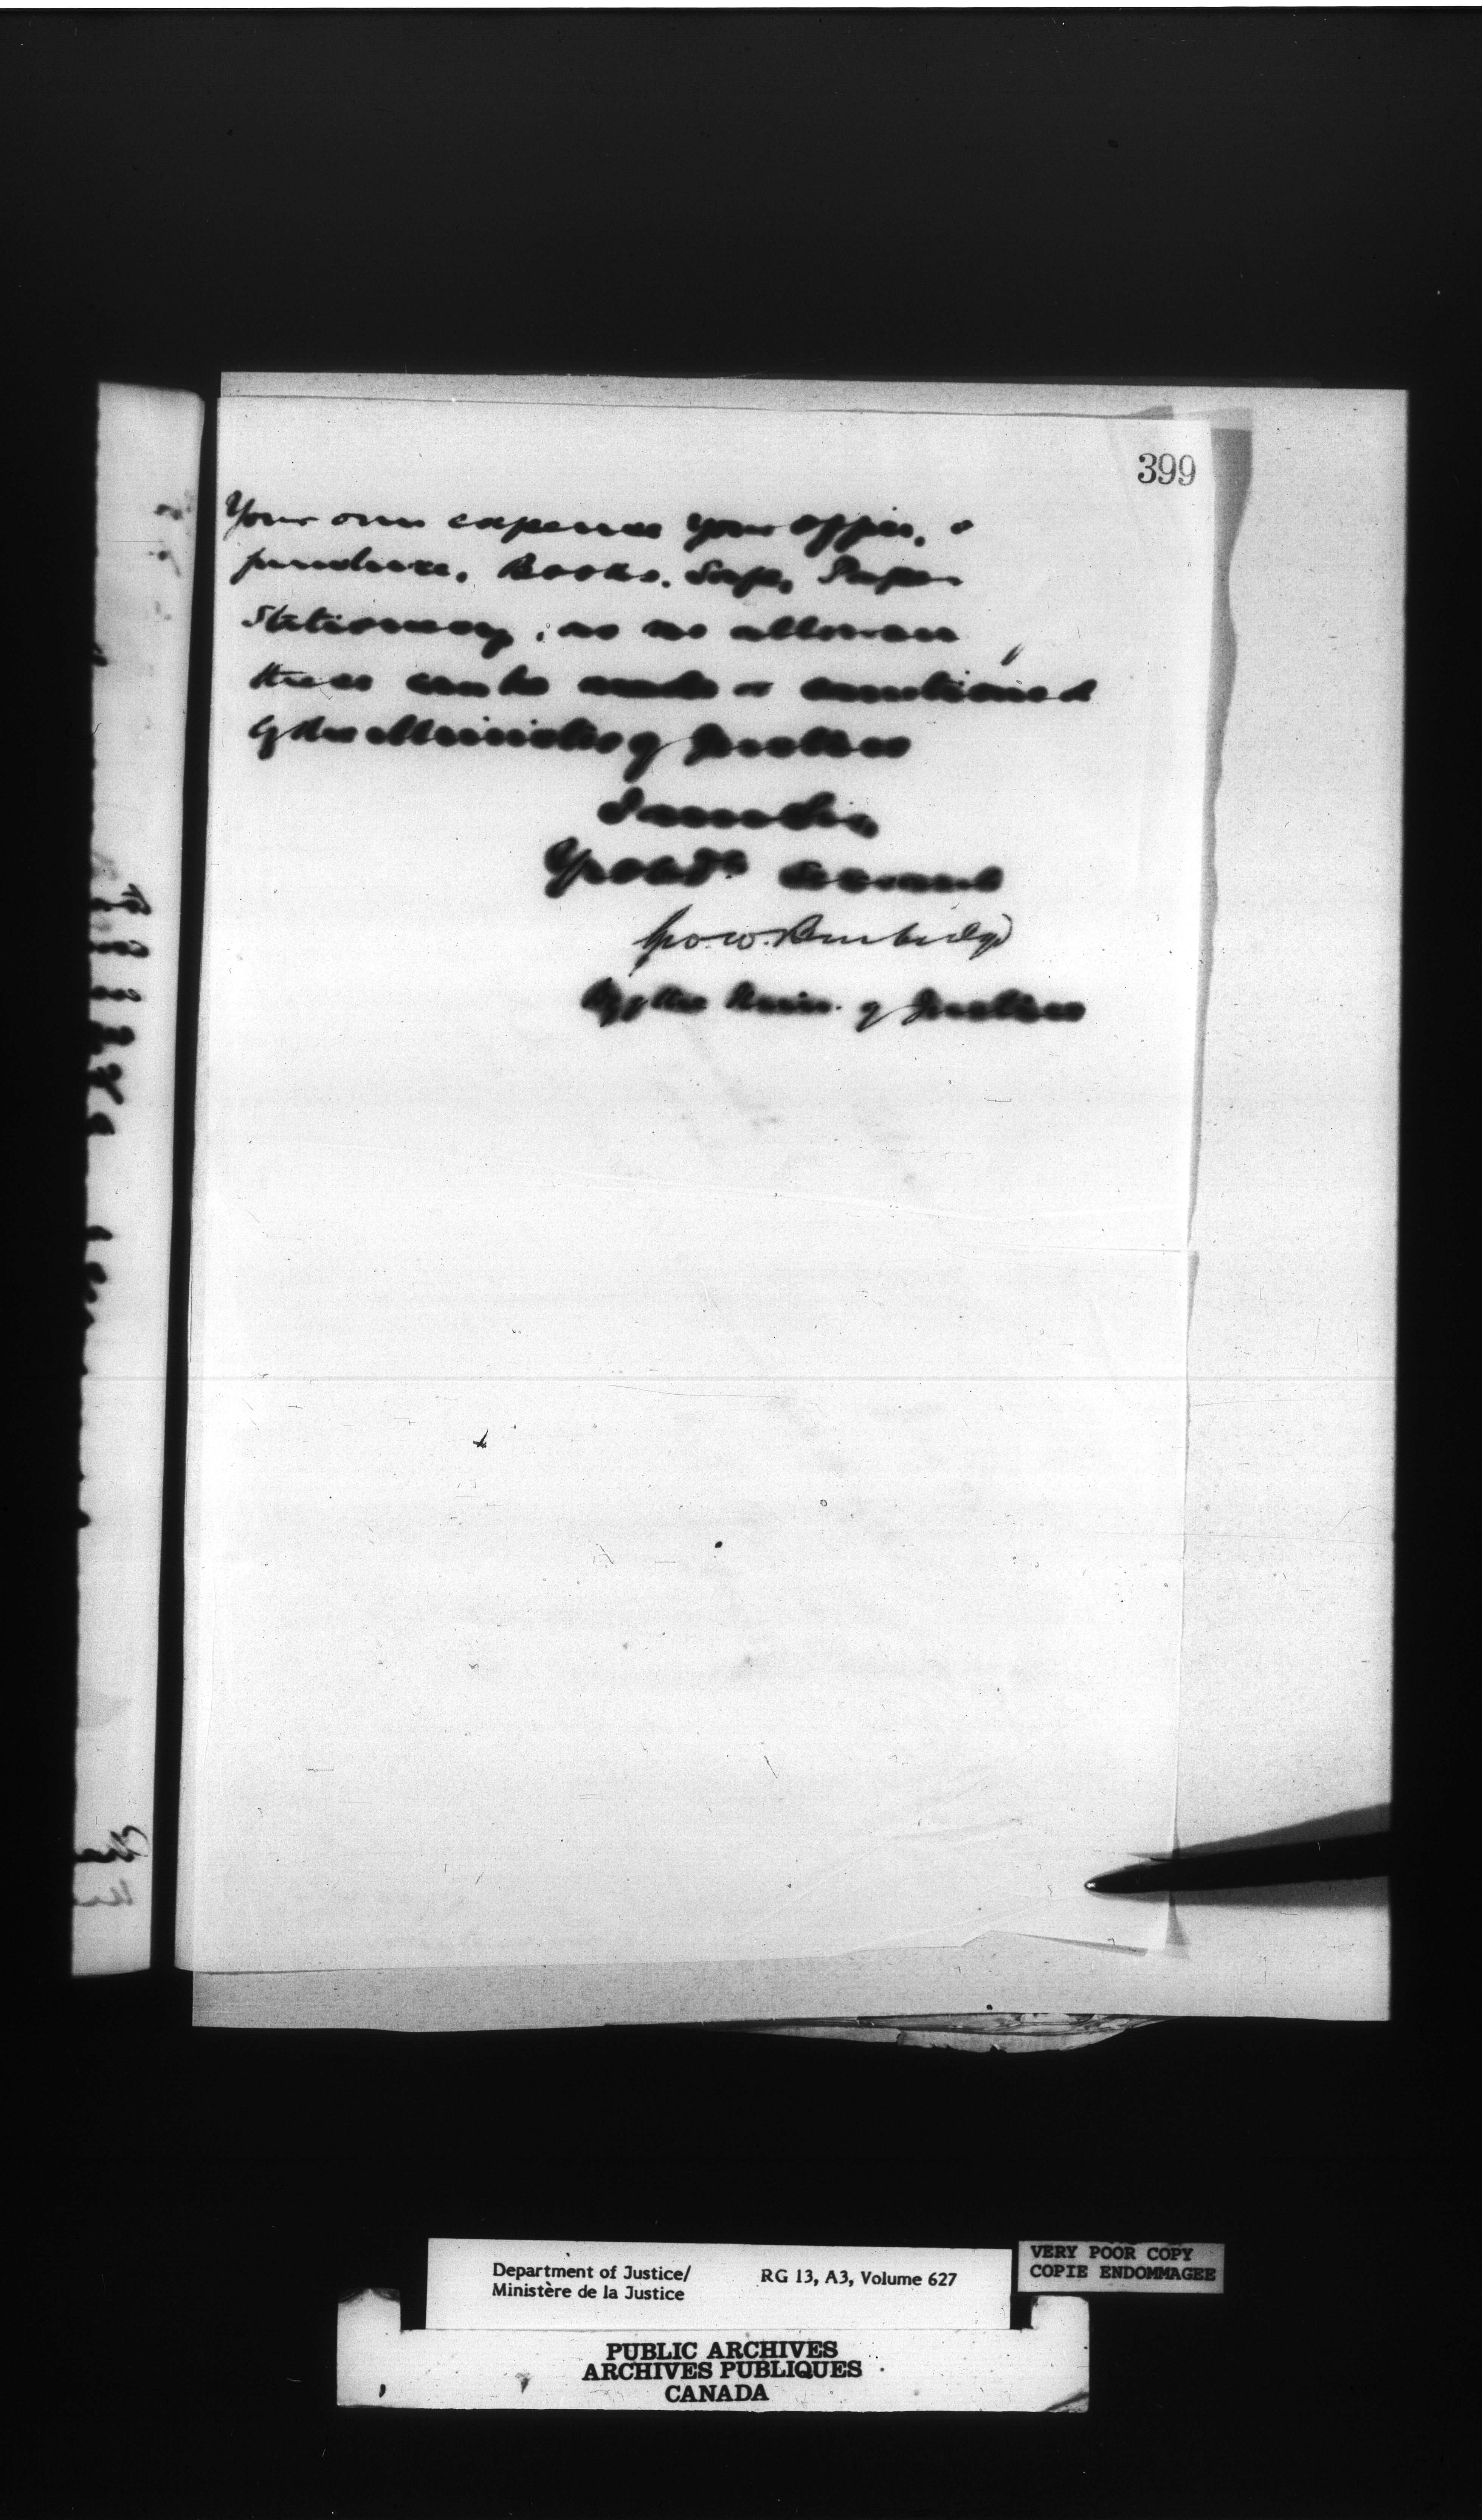 399
Your own expense your office, &
furniture, Books, Safe, Paper
Stationery, as no allowance
these can be made or
by the Minister of Justice
I am Sir
Yr obdt Servant
Geo. W. Burbidge
Dy of the Min. of Justice
Department of Justice/
Ministère de la Justice
RG 13, A3, Volume 627
VERY POOR COPY
COPIE ENDOMMAGEE
PUBLIC ARCHIVES
ARCHIVES PUBLIQUES
CANADA